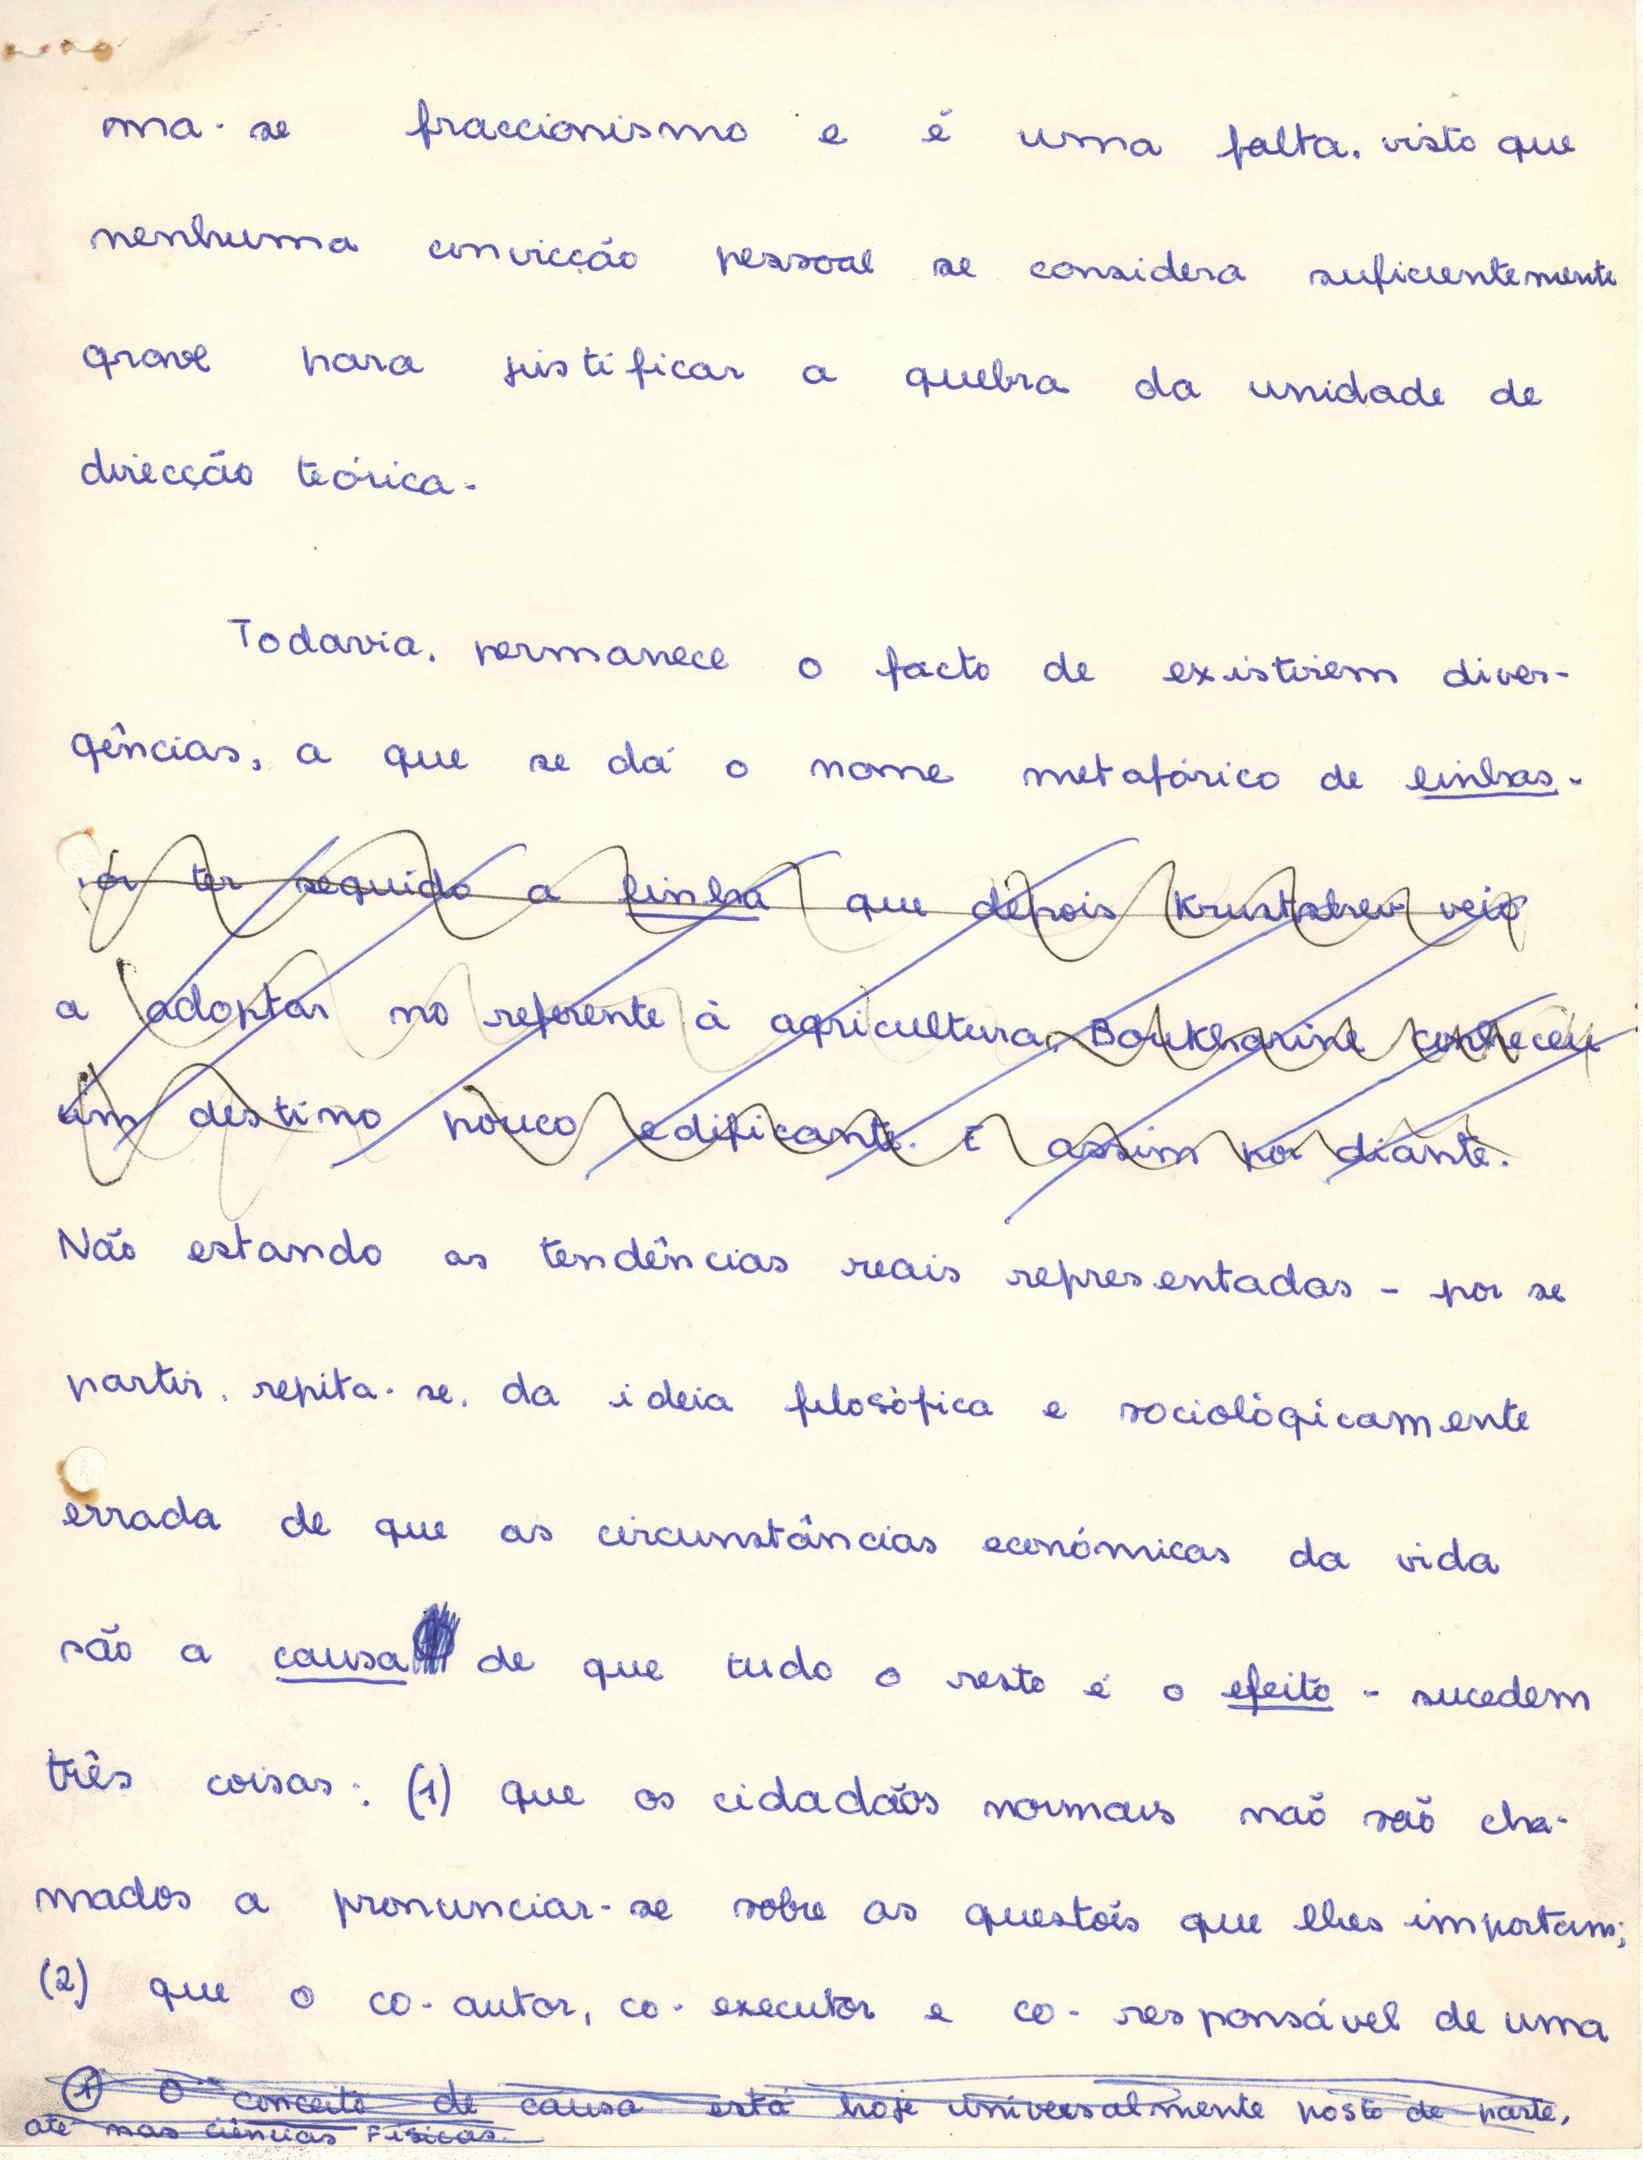 ma-se fraccionismo e é uma falta, visto que
nenhuma convicção pessoal se considera suficientemente
grave para justificar a quebra da unidade de
direcção teórica.
Todavia, permanece o facto de existirem diver-
gências, a que se dá o nome metafórico de linhas.
Por ter seguido a linha que depois Krustchev veio
a adoptar no referente à agricultura, Boukharine conheceu
um destino pouco edificante. E assim por diante.
Não estando as tendências reais representadas - por se
partir, repita-se, da ideia filosófica e sociològicamente
errada de que as circunstâncias económicas da vida
são a causa de que tudo o resto é o efeito - sucedem
três coisas: (1) que os cidadãos normais não são cha-
mados a pronunciar-se sobre as questões que lhes importam;
(2) que o co-autor, co-executor e co-responsável de uma
(1) O conceito de causa está hoje universalmente posto de parte,
até nas ciências Físicas.